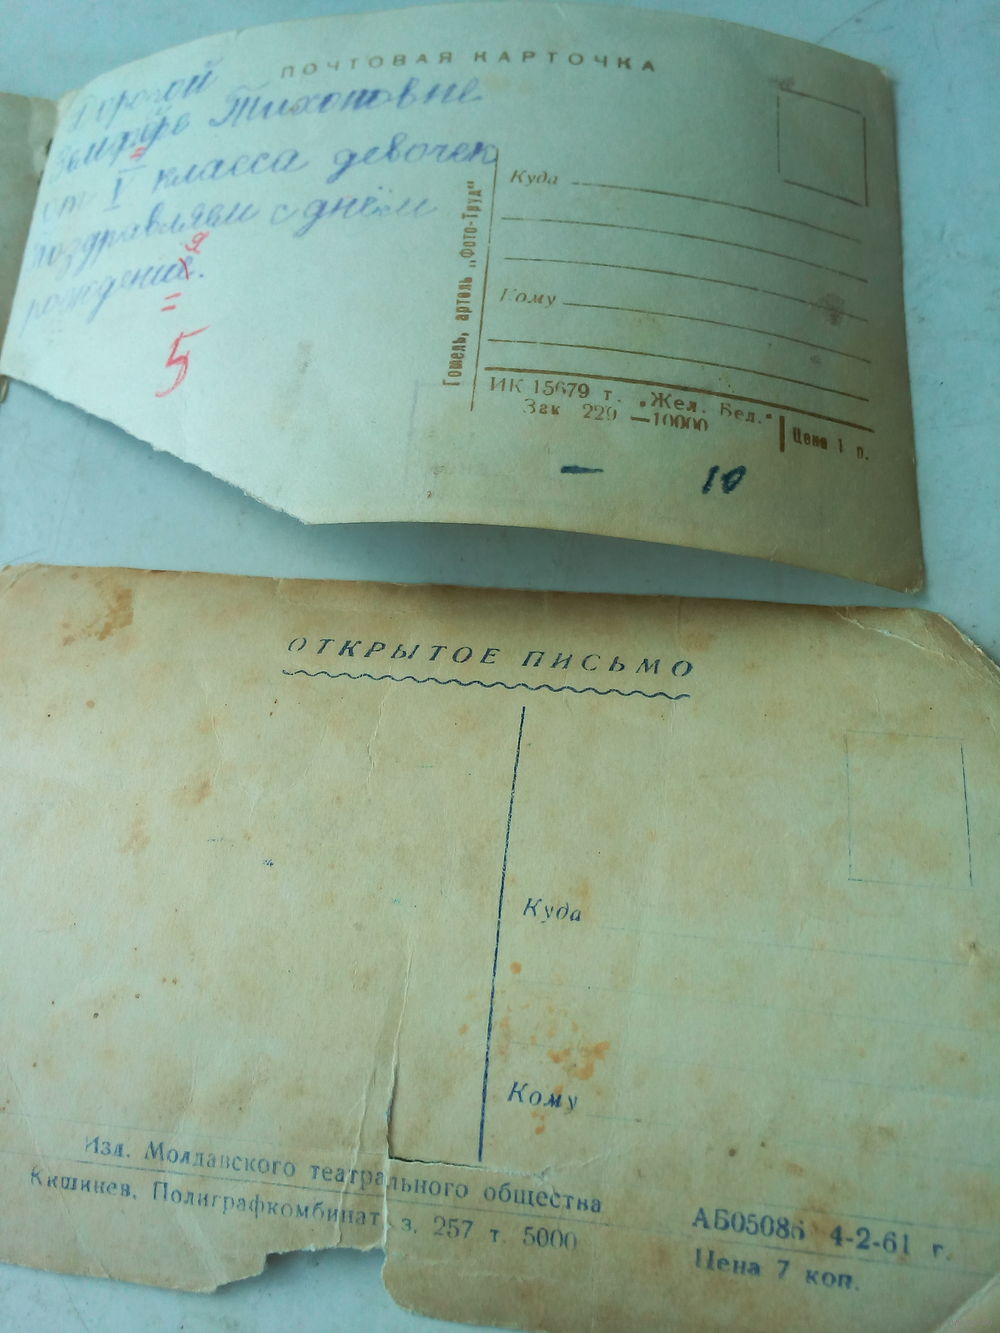 ПОЧТОВАЯ КАРТОЧКА
Дорогой
Земфёре Тихоновне
от V класса девочек
поздравляем с днём
рождение.
я
5
Гомель, артель „Фото-Труд"
Куда
Кому
ИК 15679 г. „Жел. Бел."
Зак 229 —10000
Цена 1 р.
— 10
ОТКРЫТОЕ ПИСЬМО
Куда
Кому
Изд. Молдавского театрального общества
Кишинев, Полиграфкомбинат з. 257 т. 5000
АБ05086 4-2-61 г.
Цена 7 коп.